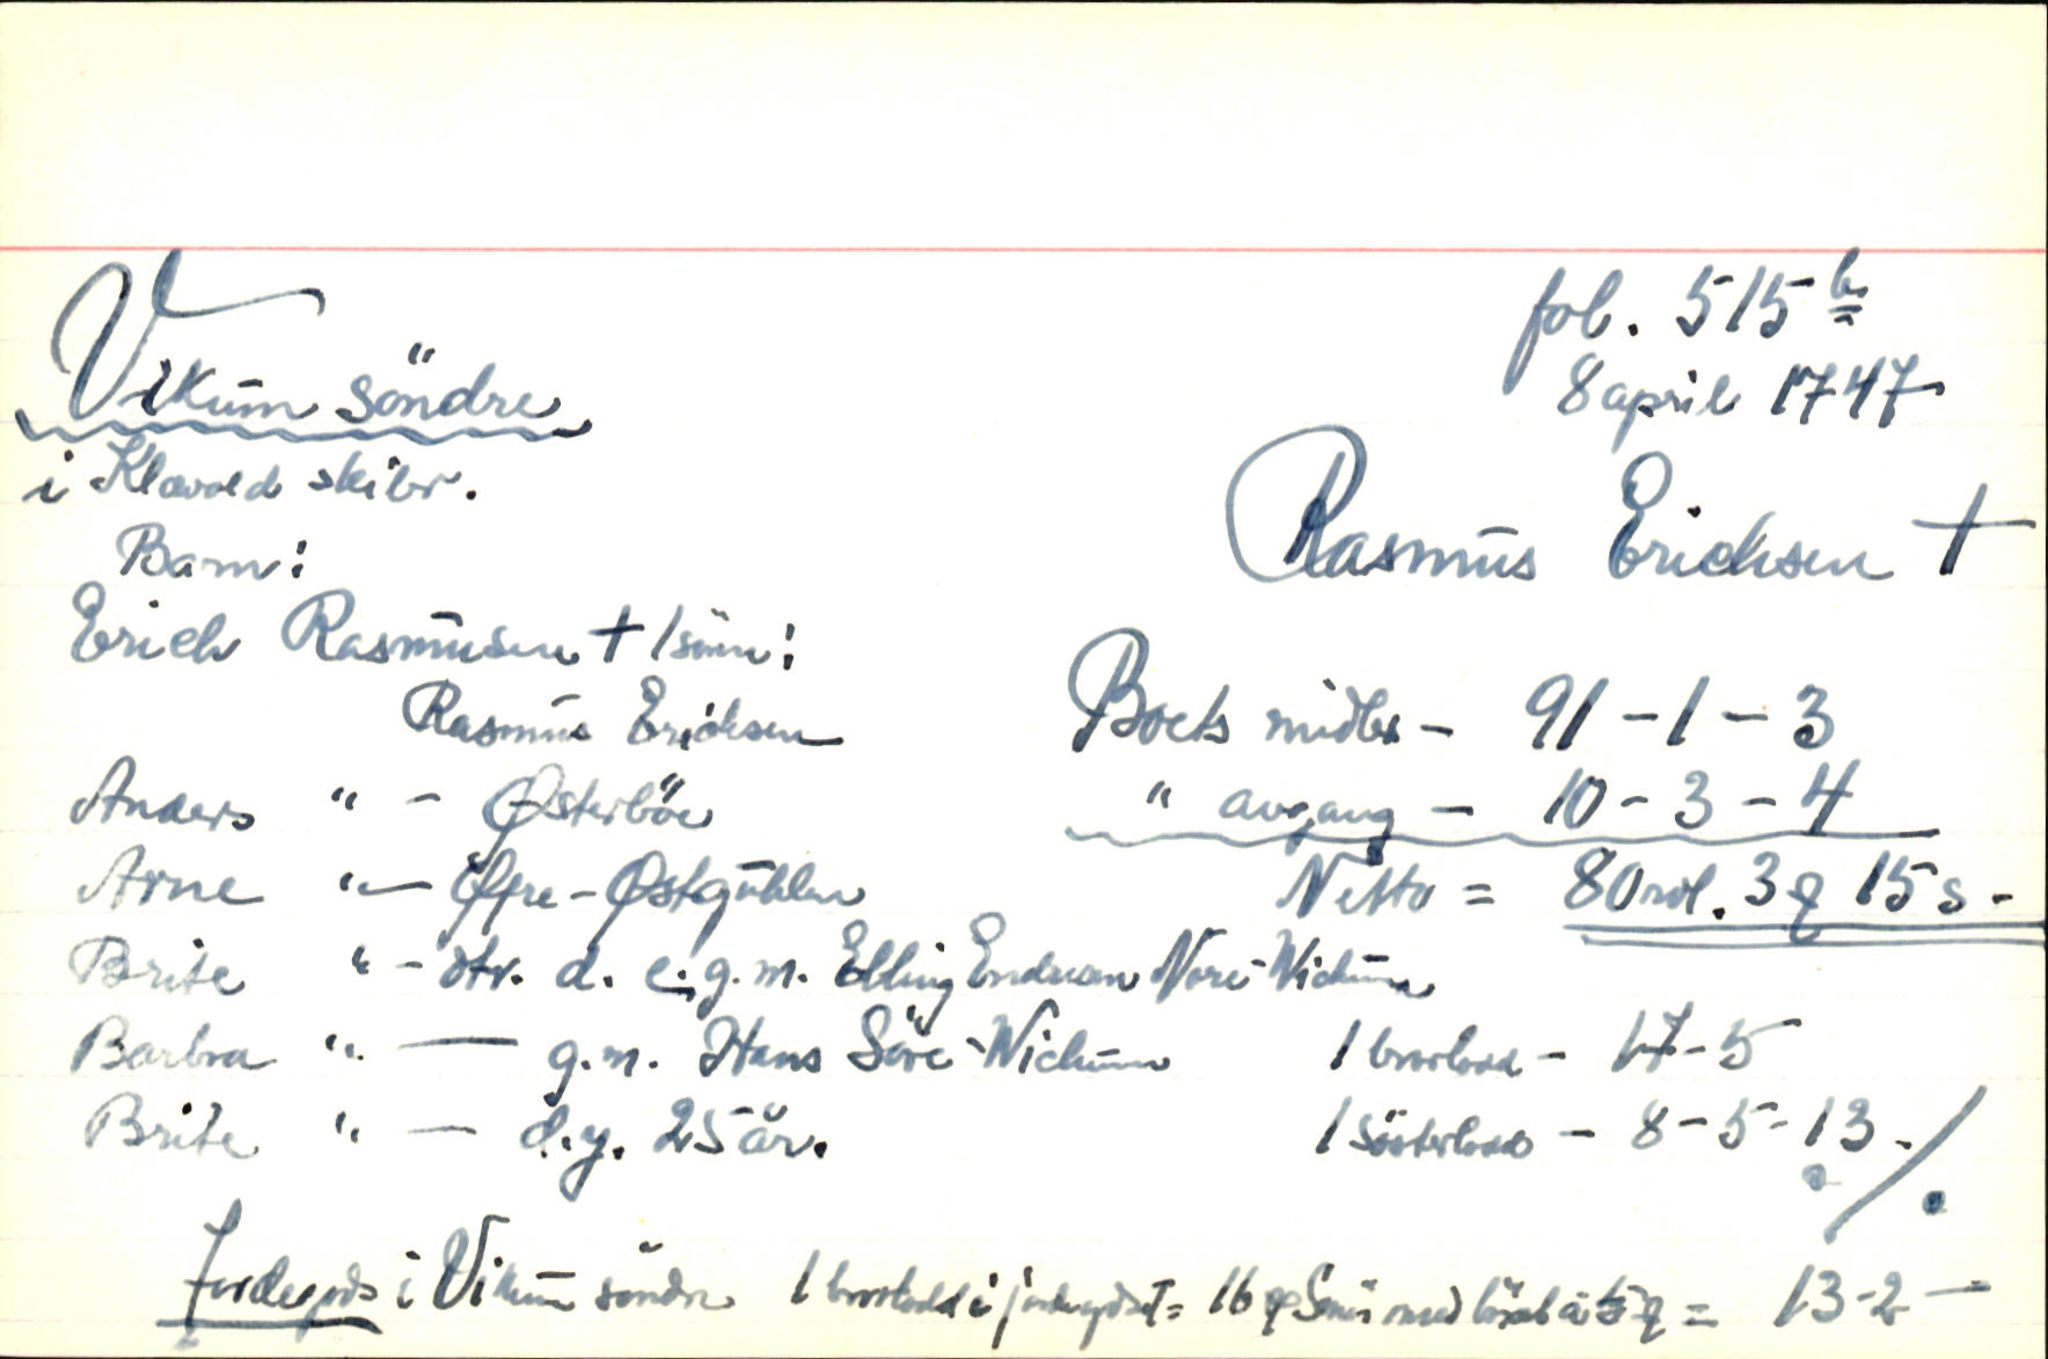 fol. 515 b
8 april 1747
Vikum söndre
i Klævold skibr.
Rasmus Erichsen †
Barn:
Erich Rasmusen † 1 sönn:
Rasmus Erichsen
Anders " - Østerböe
Arne " - Øfre-Østgühlen
Brite " - dtr. d. e. g.m. Elling Nore-Wichum
Barbra " — g.m. Hans Söre-Wichum
Brite " — d.y. 25 år.
Boets midler - 91-1-3
" avgang - 10-3-4
Netto = 80 rdl. 3 q 15 s -
1 brorlodd - 17-5
1 sösterlodd - 8-5-13 -
Jordegods i Vikum söndre 1 brorlodd i jordegodset = 16 Smör med = 13-2 -